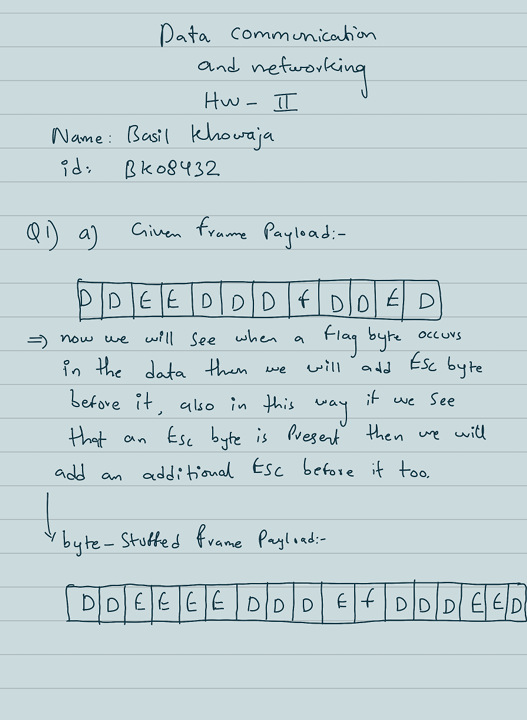 Data communication
and networking
HW - II
Name: Basil Khowaja
id: BK08432
Q1) a) Given frame Payload:-
D D E E D D D f D D E D
⇒ now we will see when a flag byte occurs
in the data then we will add ESC byte
before it, also in this way if we see
that an Esc byte is Present then we will
add an additional ESC before it too.
byte-Stuffed frame Payload:-
D D E E E E D D D E f D D D E E D